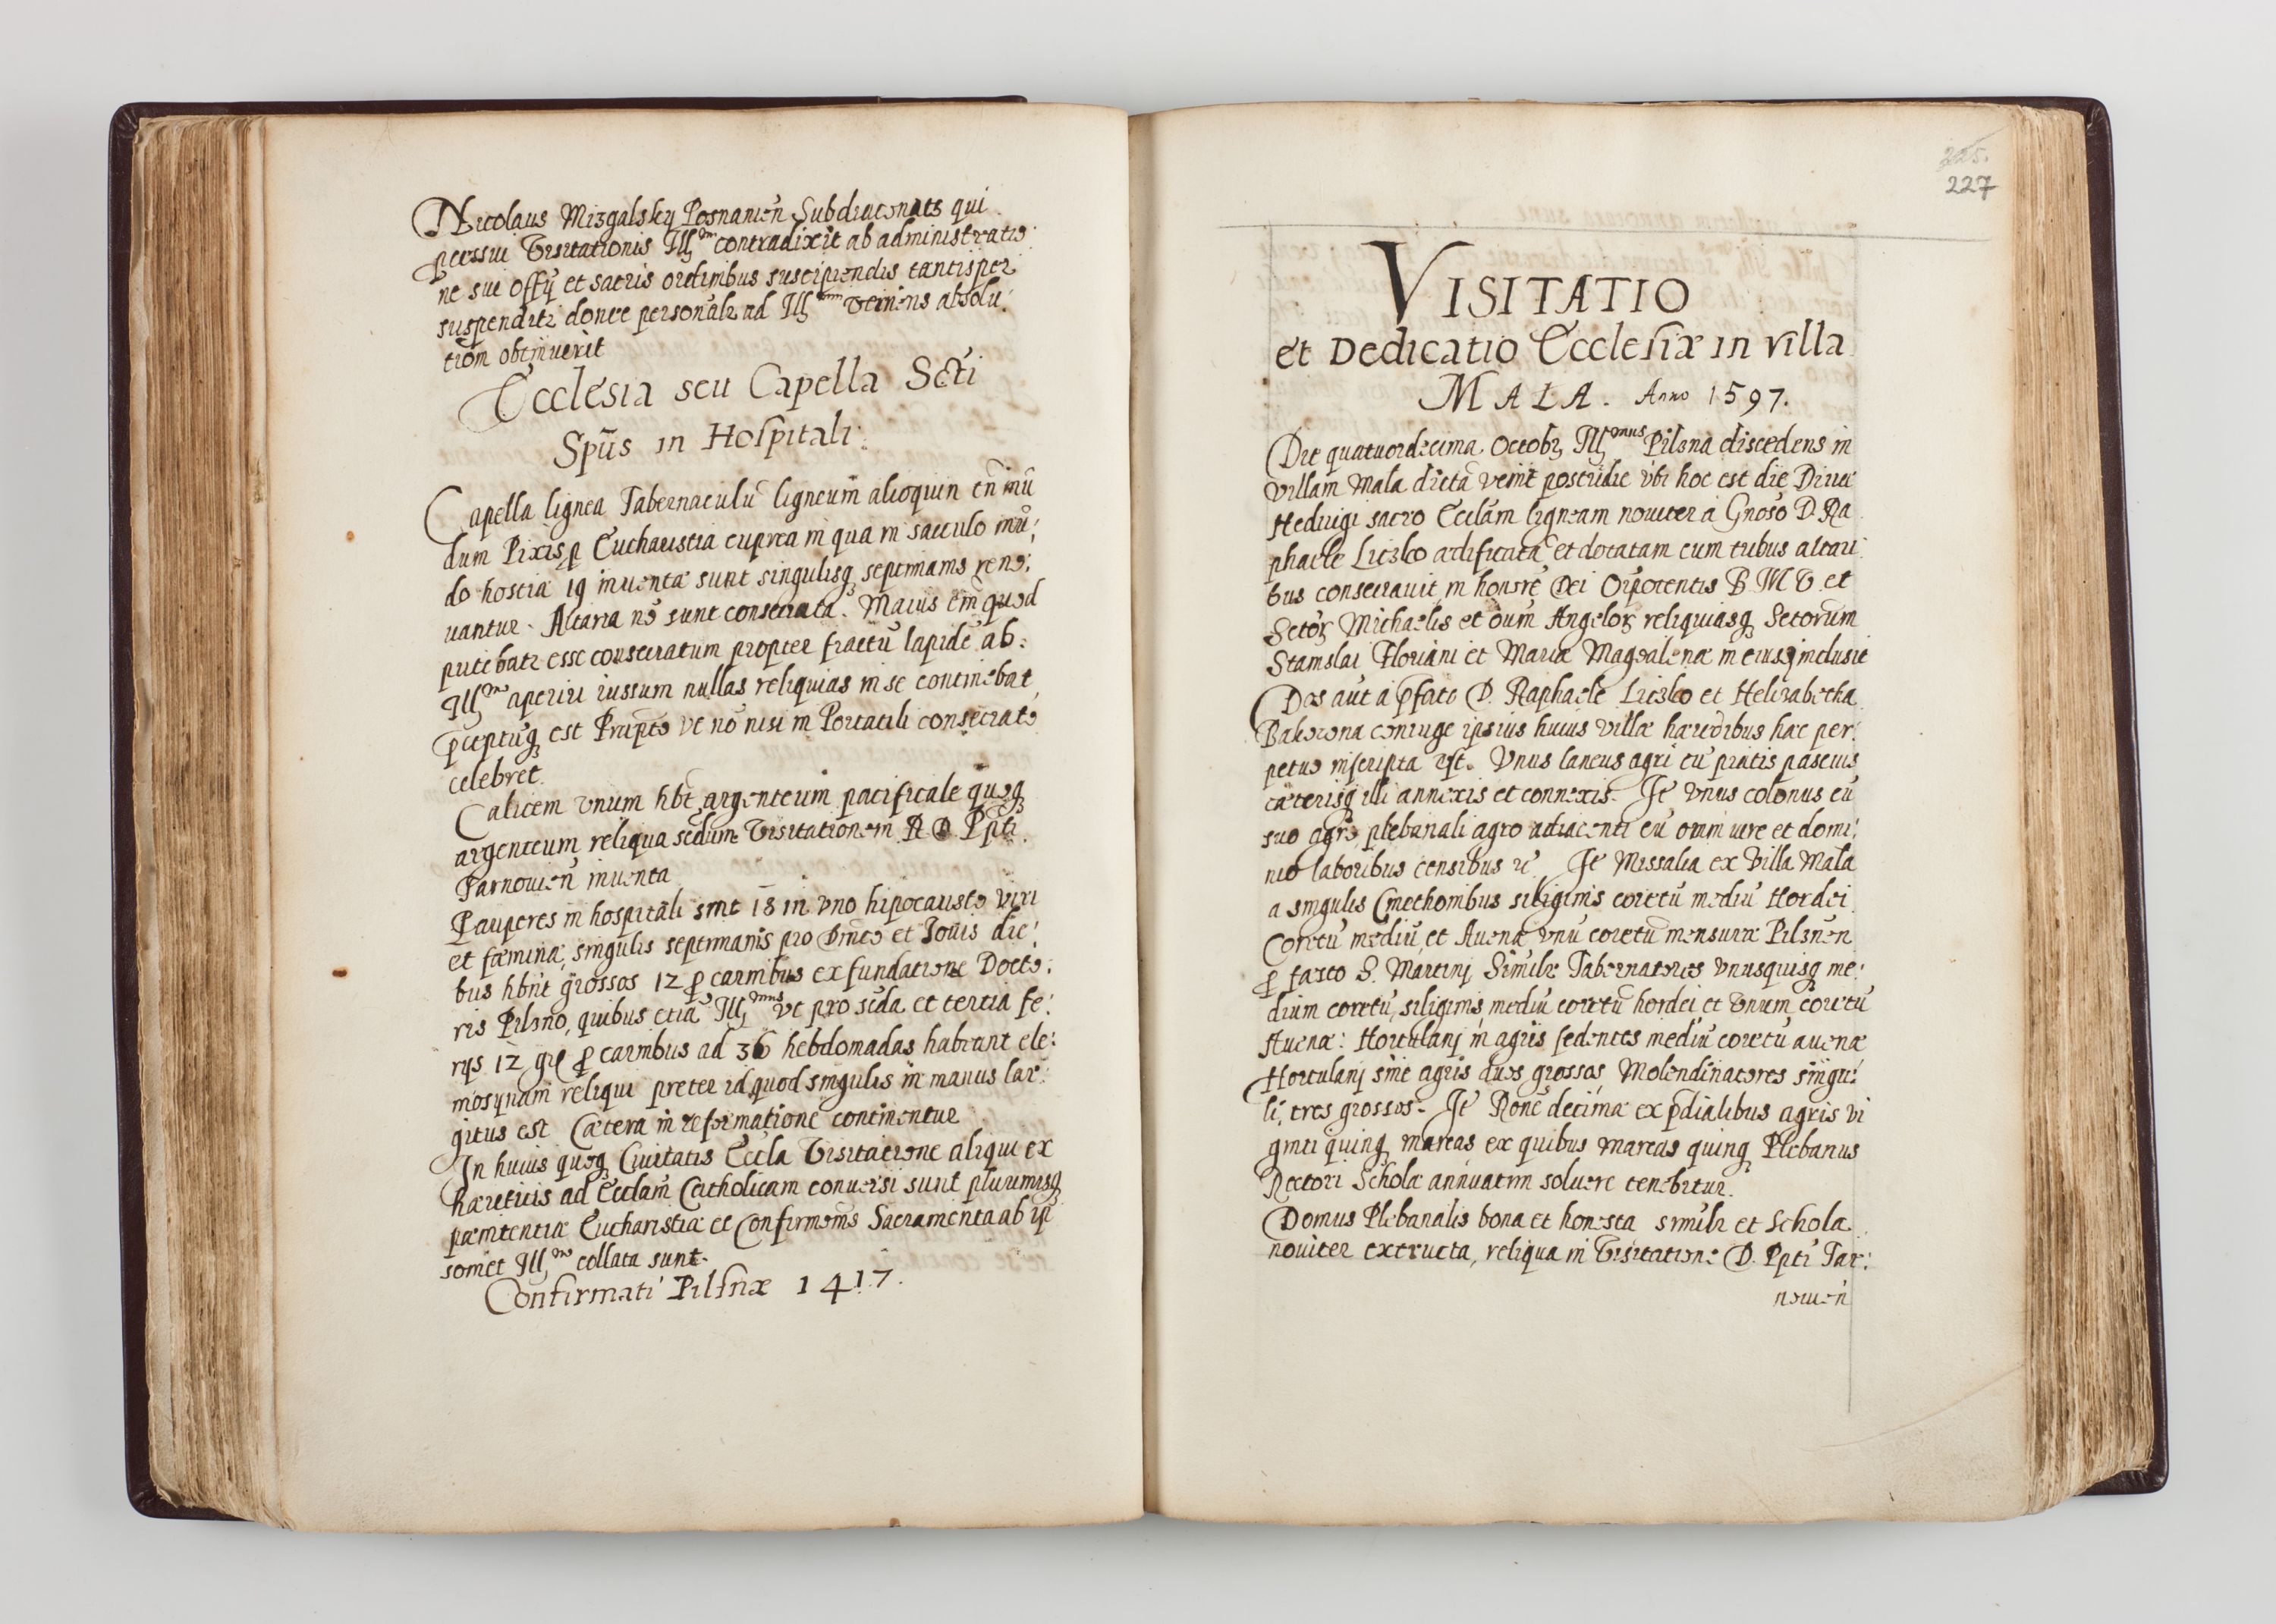 Nicolaus Mizgalsky Posnanien Subdiaconats qui
pcessui Visitationis Illmo contradixit ab administratio:
ne sui offÿ et sacris ordinibus suscipiendis tantisper
suspenditr donec personalr ad Illmum veniens absolu:
tiom obtinuerit
Ecclesia seu Capella Scti
Spūs in Hospitali.
Capella lignea Tabernaculū ligneum alioquin
dum Pixis p Eucharistia cuprea in qua in sacculo mū:
do hostiæ 19 inventæ sunt singulisq septimanis reno:
uantur. Altaria nō sunt consecrata. Maius em̄ quod
putabatr esse consecratum propter fractū lapidē ab
Illmo aperiri iussum nullas reliquias in se continebat
pceptūq est Præpto vt nō nisi in Portatili consecrato
celebret.
Calicem vnum hb̄t argenteum pacificale quoq
argenteum reliqua scdum Visitationem R D Ppti
Tarnouien inuenta
Pauperes in hospitali sunt 18 in vno hipocausto viri
et fœminæ, singulis septimanis pro Dnico et Iouis die:
bus hbn̄t grossos 12 p carnibus ex fundatione Docto:
ris Pilsno, quibus etiā Illmus vt pro scda et tertia fe:
rijs 12 gr p carnibus ad 36 hebdomadas habeant ele:
mosynam reliqui preter id quod singulis in manus lar:
gitus est Cætera in reformatione continentur
In huius quoq Ciuitatis Eccla Visitatione aliqui ex
hæreticis ad Ecclam Catholicam conuersi sunt plurimisq
pœnitentiæ Eucharistiæ et Confirmonis Sacramenta ab ip
somet Illmo collata sunt.
Confirmati Pilsnæ 1417.
225.
227
VISITATIO
et Dedicatio Ecclesiæ in villa
MALA. Anno 1597.
Die quatuordecima. Octobr Illmus Pilsna discedens in
villam Mala dictā venit postridie vbi hoc est die Diuæ
Heduigi sacro Ecclam ligneam nouiter a Gnoso D. Ra
phaele Liczko ædificatā et dotatam cum tribus altari:
bus consecrauit in honorē Dei Oīpotentis B M V et
Sctor Michaelis et oium Angelor reliquiasq Sctorum
Stanislai Floriani et Mariæ Magdalenæ in eiusq inclusit
Dos aut a pfato D. Raphaele Liczko et Helizabetha
coniuge ipsius huius villæ hæredibus hac per:
petuo inscripta est. Vnus laneus agri cū pratis pascuis
cæterisq illi annexis et connexis. It Vnus colonus cū
suo agro plebanali agro adiacenti cū omni iure et domi:
nio laboribus censibus It Missalia ex Villa Mala
a singulis Cmethonibus siliginis coretū mediū Hordei
Coretū mediū et Auenæ vnū coretū mensuræ Pilsnen
p festo S. Martinj Similr Tabernatores vnusquisq me:
dium coretū, siliginis mediū coretū hordei et vnum coretū
Auenæ: Hortulanj in agris sedentes mediū coretū auenæ
Hortulanj sine agris duos grossos Molendinatores singu:
li, tres grossos. It Rone decimæ ex pdialibus agris vi
ginti quinq marcas ex quibus marcas quinq Plebanus
Rectori Scholæ annuatim soluere tenebitur.
Domus Plebanalis bona et honesta similr et Schola
nouiter extructa, reliqua in Visitatione D. Ppti Tar:
nouien